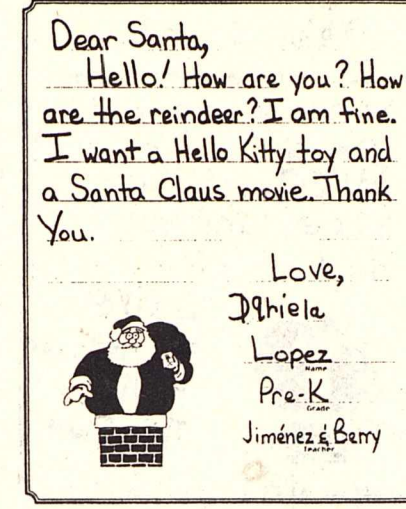 Dear Santa,
Hello! How are you? How
are the reindeer? I am fine.
I want a Hello Kitty toy and
a Santa Claus movie. Thank
You.
Love,
Daniela
Lopez
Name
Pre-K
Grade
Jiménez & Berry
Teacher